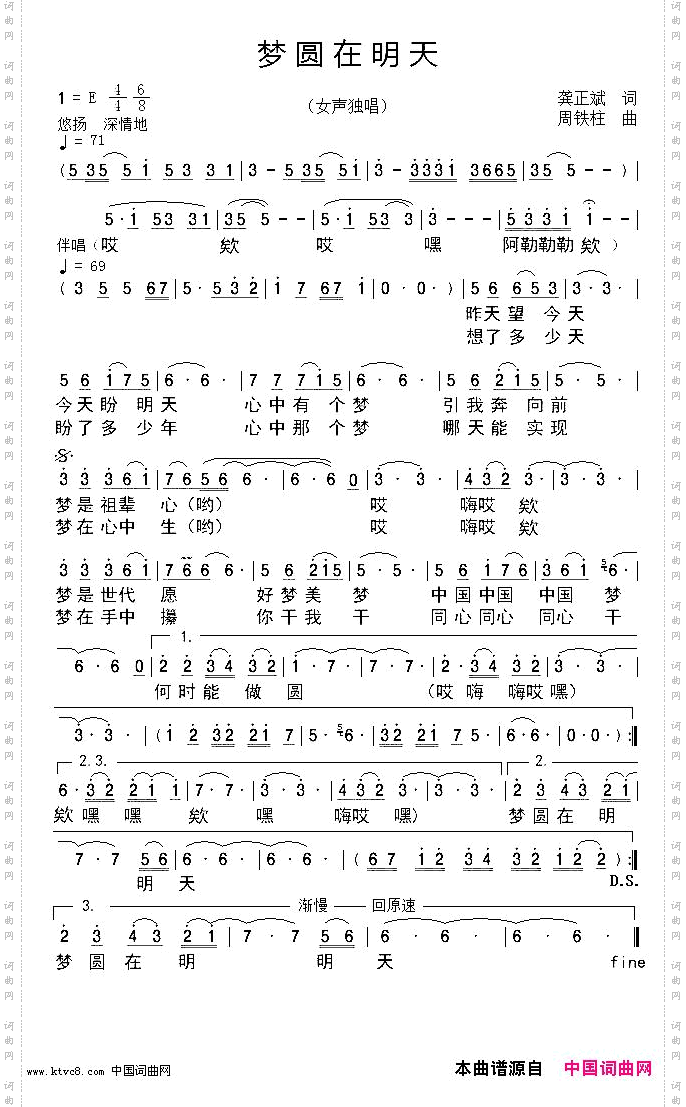 梦圆在明天
1 = E 4/4 6/8
（女声独唱）
龚正斌 词
周铁柱 曲
悠扬 深情地
♩= 71
( 5 35 5 1 53 31 | 3 - 5 35 51 | 3 - 3331 3665 | 35 5 - - ) |
5·1 53 31 | 35 5 - - | 5·1 53 3 | 3 - - - | 5331 1 - - |
伴唱（哎 欸 哎 嘿 阿勒勒勒欸 ）
♩= 69
( 3 5 5 67 | 5· 532 | 1 7 671 | 0· 0· ) | 56 653 | 3· 3· |
昨天望 今天
想了多 少天
56 175 | 6· 6· | 77 715 | 6· 6· | 56 215 | 5· 5· |
今天盼 明天 心中有 个梦 引我奔 向前
盼了多 少年 心中那 个梦 哪天能 实现
33 361 | 7656 6· | 6· 60 | 3· 3· | 432 3 | 3· 3· |
梦是祖辈 心（哟） 哎 嗨哎 欸
梦在心中 生（哟） 哎 嗨哎 欸
33 361 | 766 6· | 56 215 | 5· 5· | 56 176 | 361 6· |
梦是世代 愿 好梦美 梦 中国中国 中国 梦
梦在手中 攥 你干我 干 同心同心 同心 干
1.
6· 60 | 22 34 32 | 1· 7· | 7· 7· | 2·343 232 | 3· 3· |
何时能 做圆 （哎 嗨 嗨哎嘿）
3· 3· | ( 1 2 32 21 7 | 5· 6· | 32 21 7 5 | 6· 6· | 0· 0· ) :‖
2.3.
2.
6·32 211 | 7· 7· | 3· 432 | 3· 3· | 23 43 21 |
欸嘿 嘿 欸 嘿 嗨哎 嘿） 梦圆在 明
7· 7 56 | 6· 6· | 6· 6· | ( 67 12 34 32 12 2 ) :‖
明 天
D.S.
3. 渐慢 —— 回原速
2 3 43 21 | 7· 7 56 | 6· 6· | 6· 6· ‖
梦 圆 在 明 明 天 fine
www.ktvc8.com 中国词曲网
本曲谱源自 中国词曲网